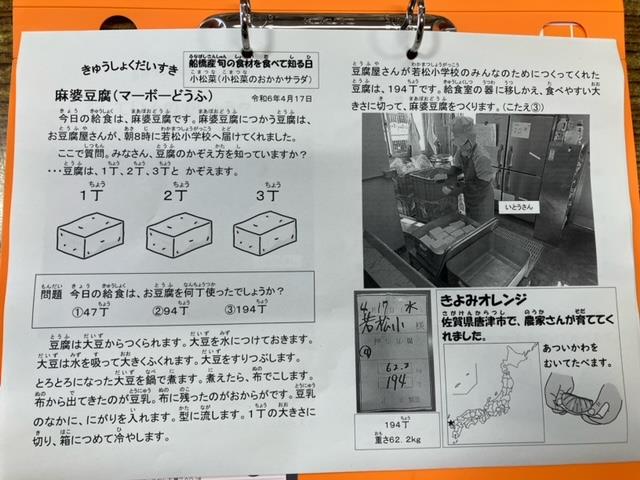 きゅうしょくだいすき
船橋産旬の食材を食べて知る日
小松菜(小松菜のおかかサラダ)
麻婆豆腐(マーボーどうふ)
令和6年4月17日
今日の給食は、麻婆豆腐です。麻婆豆腐につかう豆腐は、
お豆腐屋さんが、朝8時に若松小学校へ届けてくれました。
ここで質問。みなさん、豆腐のかぞえ方を知っていますか?
・・・豆腐は、1丁、2丁、3丁と かぞえます。
1丁 2丁 3丁
問題 今日の給食は、お豆腐を何丁使ったでしょうか?
①47丁 ②94丁 ③194丁
豆腐は大豆からつくられます。大豆を水につけておきます。
大豆は水を吸って大きくふくれます。大豆をすりつぶします。
とろとろになった大豆を鍋で煮ます。煮えたら、布でこします。
布から出てきたのが豆乳。布に残ったのがおからがです。豆乳
のなかに、にがりを入れます。型に流します。1丁の大きさに
切り、箱につめて冷やします。
豆腐屋さんが若松小学校のみんなのためにつくってくれた
豆腐は、194丁です。給食室の器に移しかえ、食べやすい大
きさに切って、麻婆豆腐をつくります。(こたえ③)
いとうさん
4月17日 水
若松小 様
62.2
194
194丁
重さ62.2kg
きよみオレンジ
佐賀県唐津市で、農家さんが育ててく
れました。
あついかわを
むいてたべます。